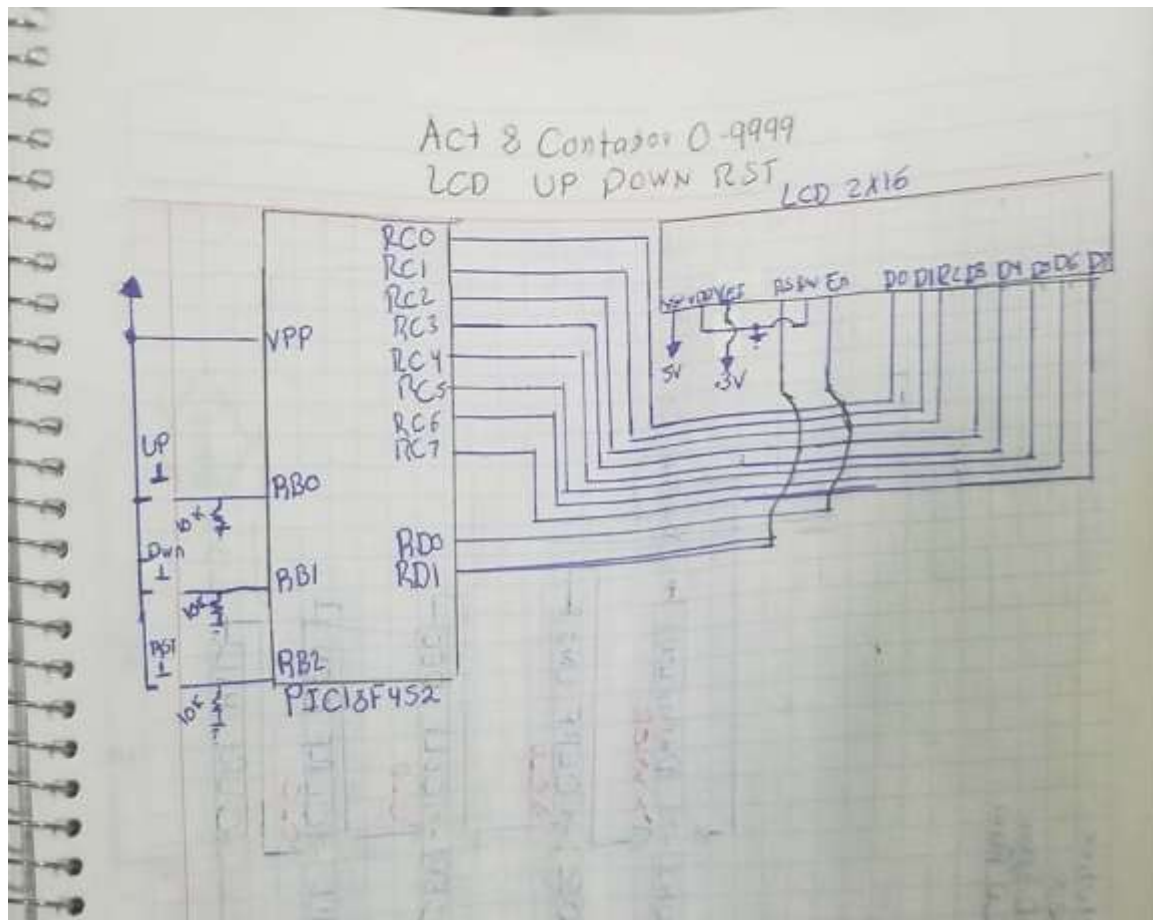 Act 8 Contador 0-9999
LCD UP DOWN RST
LCD 2X16
RC0
RC1
RC2
RC3
RC4
RC5
RC6
RC7
RD0
RD1
VPP
RB0
RB1
RB2
PIC18F452
UP
Dwn
RST
10k
10k
10k
RS RW En
D0 D1 D2 D3 D4 D5 D6 D7
5V
.3V